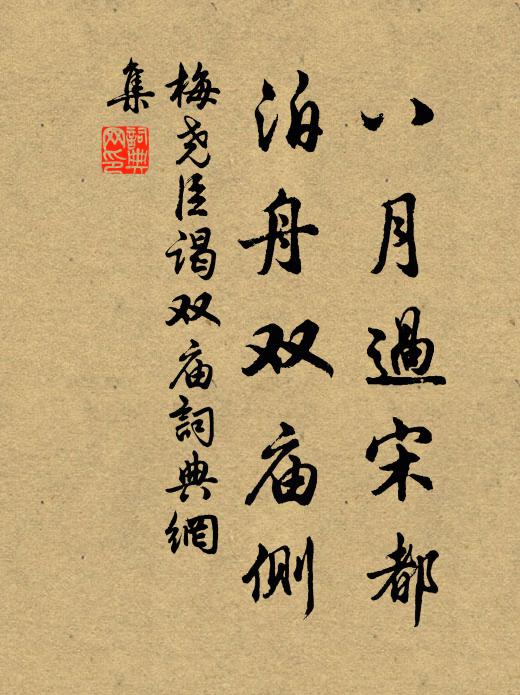 八月過宋都
泊舟双庙側
梅尧臣谒双庙詞典網
集
詞典
网印